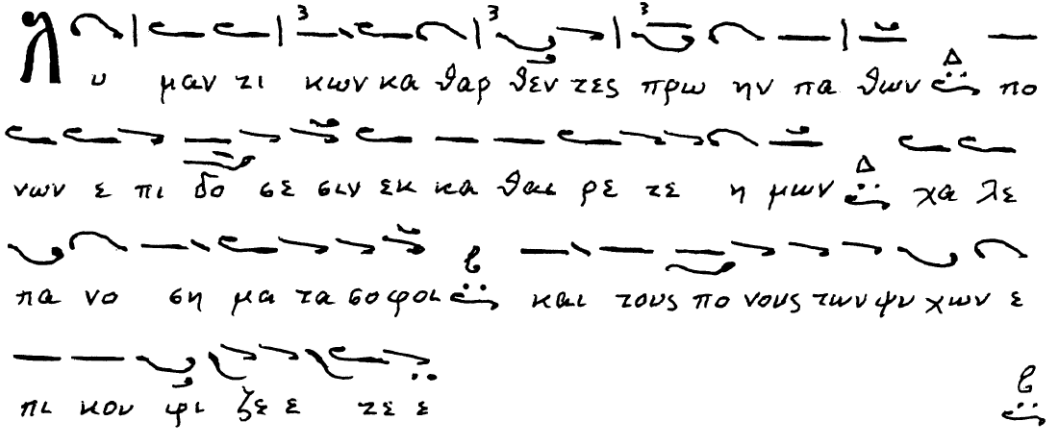 Λ υ μαν τι κων κα θαρ θεν τες πρω ην πα θων Δ πο
νων ε πι δο σε σιν εκ κα θαι ρε τε η μων Δ χα λε
πα νο ση μα τα σο φοι β και τους πο νους των ψυ χων ε
πι κου φι ζε ε τε ε β